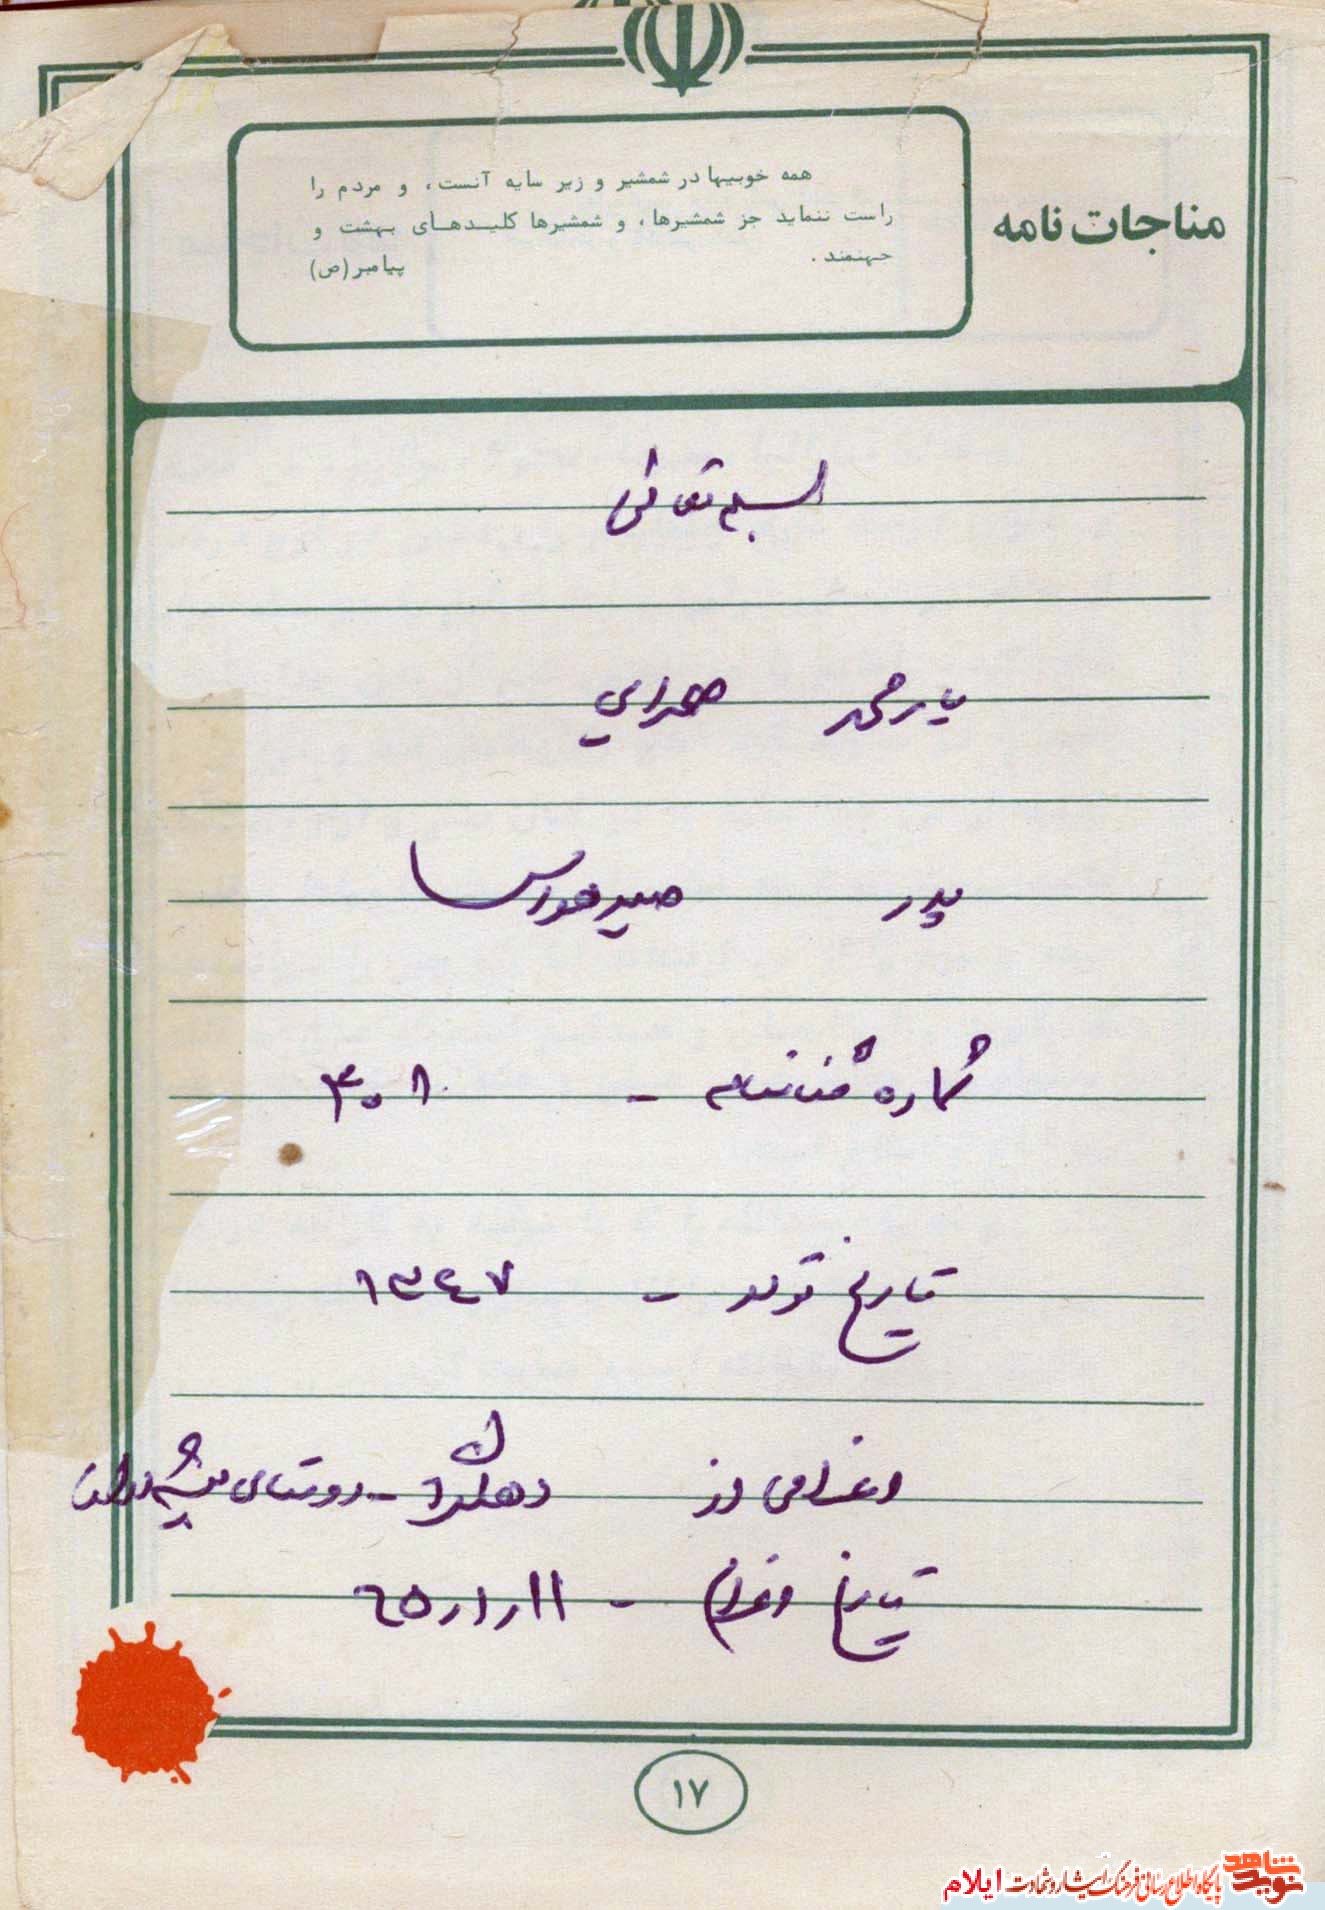 مناجات نامه
همه خوبیها در شمشیر و زیر سایه آنست، و مردم را
راست ننماید جز شمشیرها، و شمشیرها کلیدهای بهشت و
جهنمند. پیامبر(ص)
بسم تعالی
یار محمد صحرایی
پدر صید
شماره شناسنامه - ۳۰۸
تاریخ تولد - ۱۳۴۷
اعزامی از دهلران - روستای میشه
تاریخ اعزام - ۱۱ر۱ر۶۵
۱۷
نوید شاهد
پایگاه اطلاع رسانی فرهنگ ایثار و شهادت ایلام